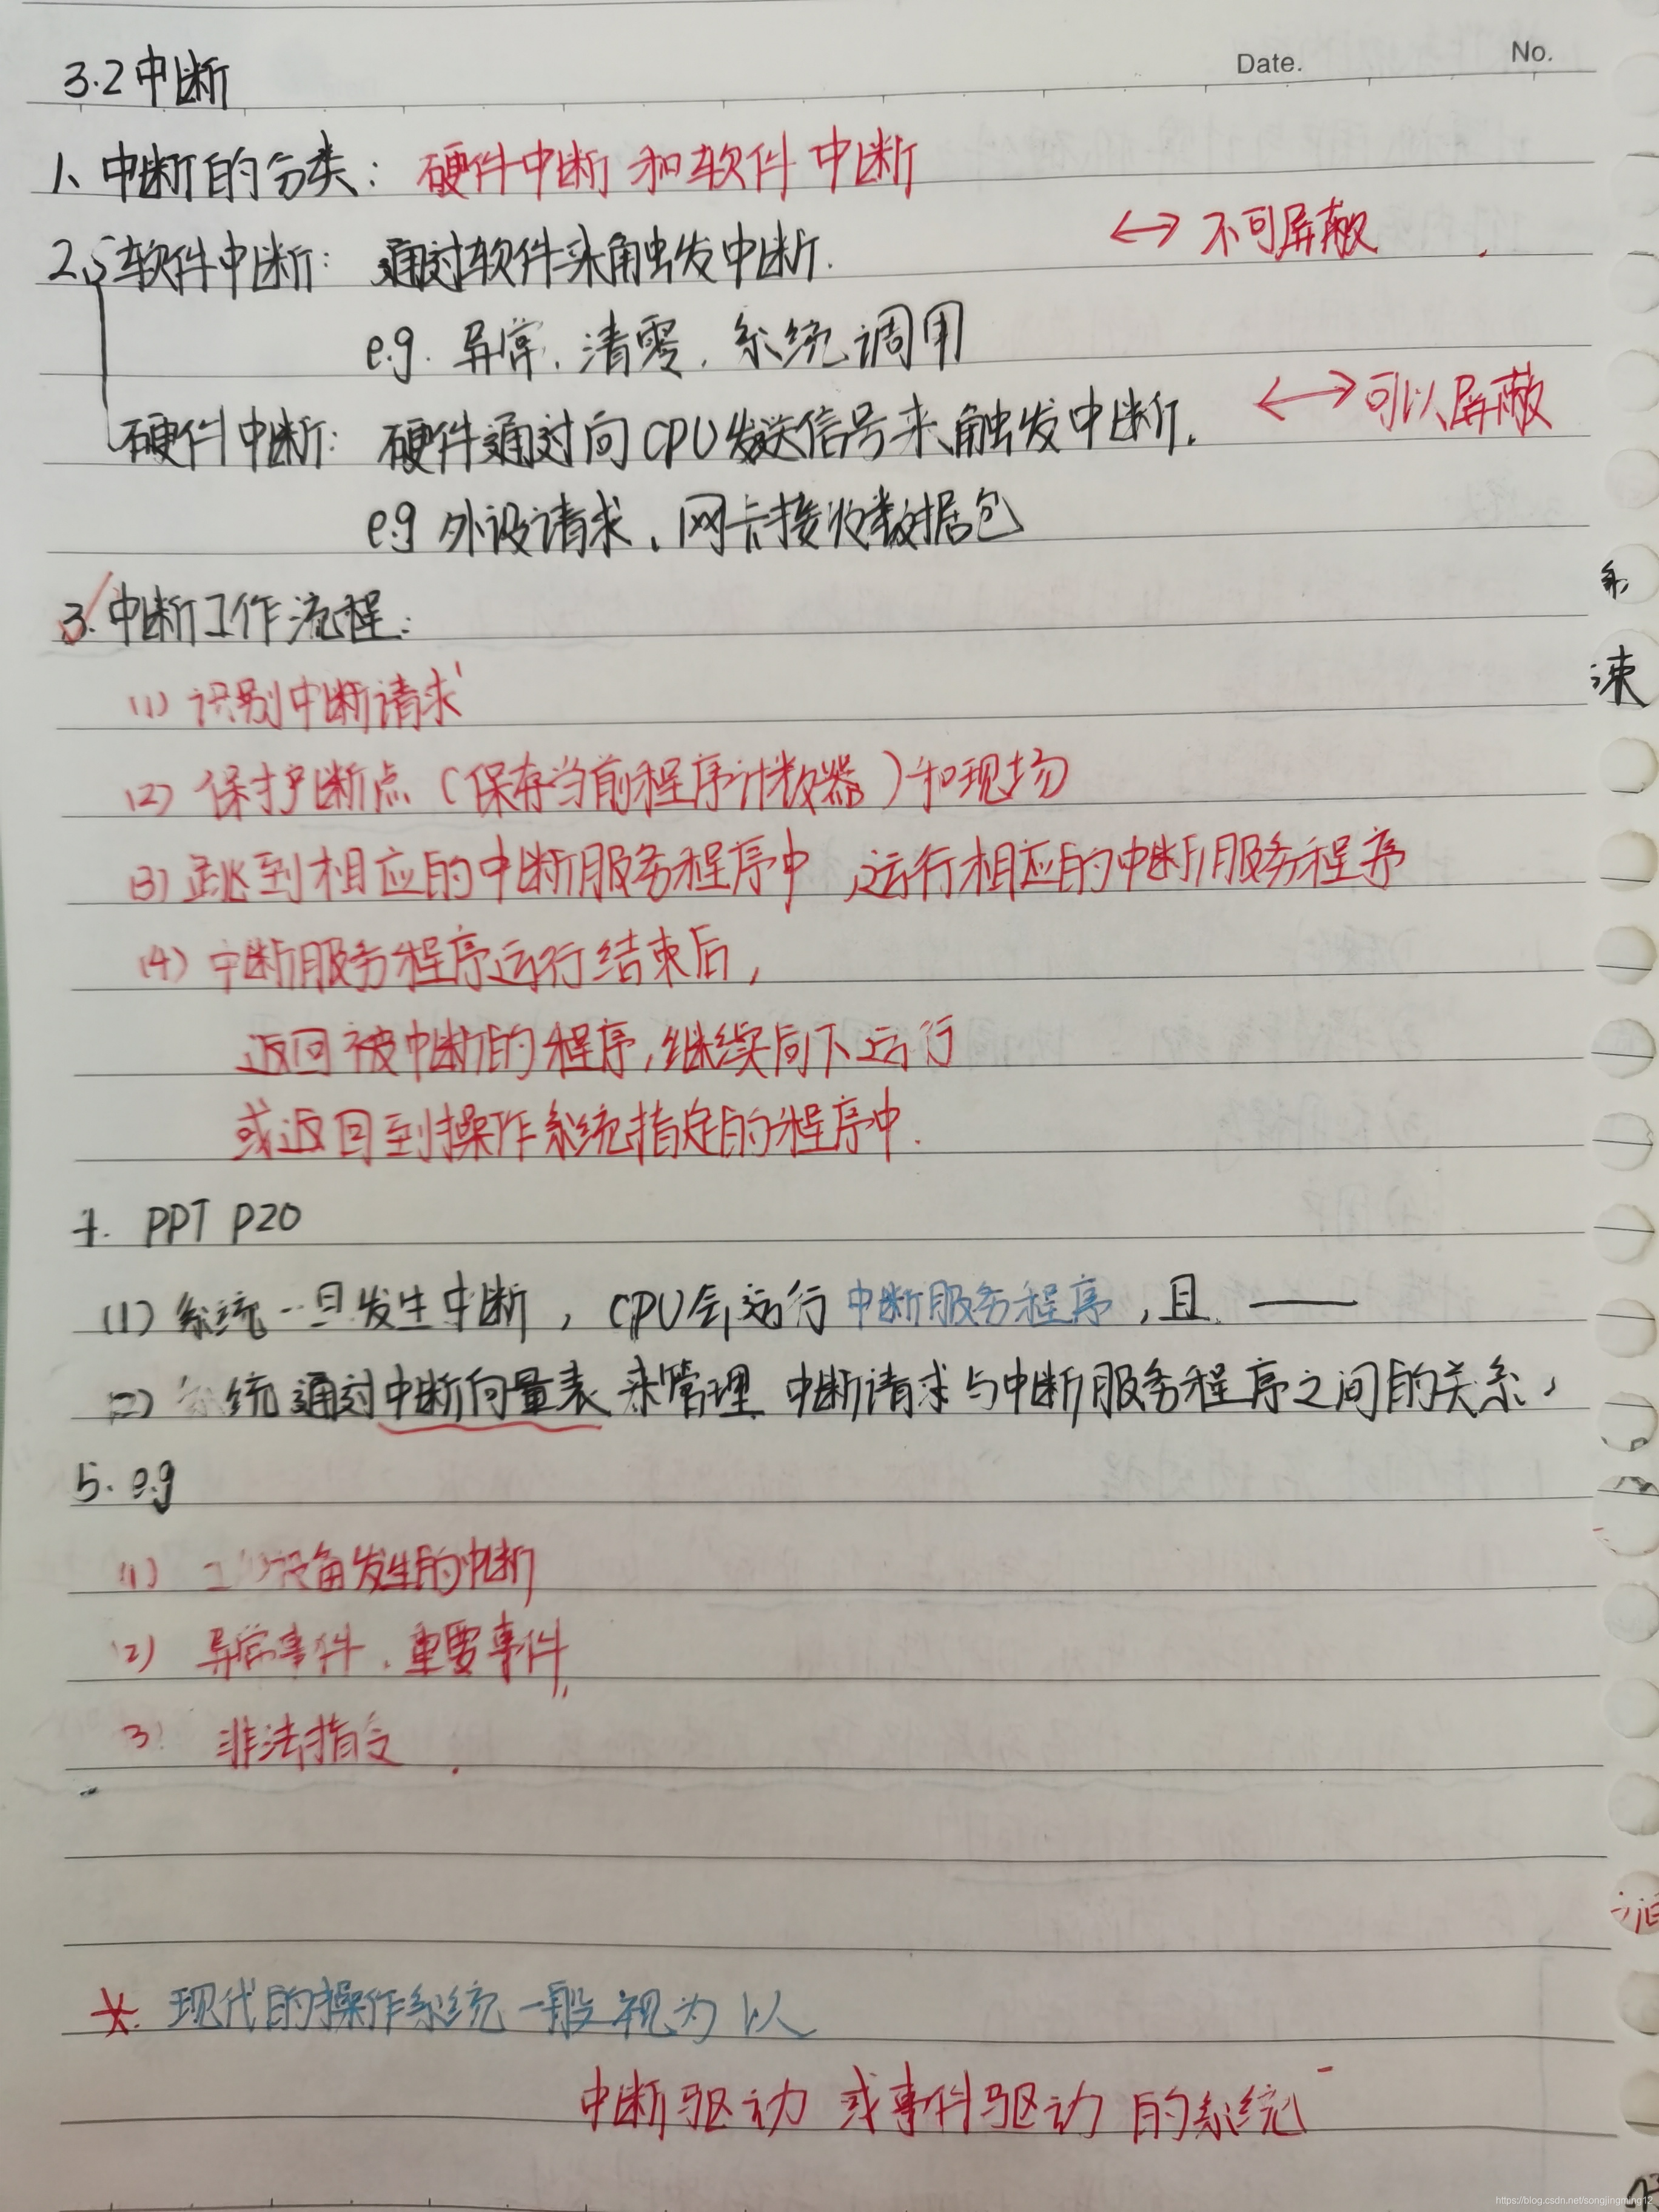 Date.
No.
3.2 中断
1、中断的分类: 硬件中断 和软件 中断
2、软件中断: 通过软件来触发中断. ↔ 不可屏蔽
e.g. 异常, 清零, 系统调用
硬件中断: 硬件通过向CPU发送信号来触发中断. ↔ 可以屏蔽
e.g 外设请求、网卡接收数据包
3. 中断工作流程:
(1) 识别中断请求
(2) 保护断点 (保存当前程序计数器) 和现场
(3) 跳到相应的中断服务程序中, 运行相应的中断服务程序
(4) 中断服务程序运行结束后,
返回被中断的程序, 继续向下运行
或返回到操作系统指定的程序中.
4. PPT P20
(1) 系统一旦发生中断, CPU会运行 中断服务程序, 且 ——
系统通过中断向量表来管理 中断请求与中断服务程序之间的关系,
5. e.g
(1) 设备发生的中断
(2) 异常事件. 重要事件,
3) 非法指令.
现代的操作系统一般视为以
中断驱动 或事件驱动 的系统
系
束
https://blog.csdn.net/songjingming12